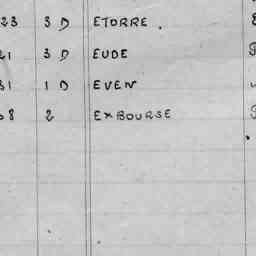 23 3 D ETORRE .
21 3 D EUDE
31 1 D EVEN
8 2 EXBOURSE